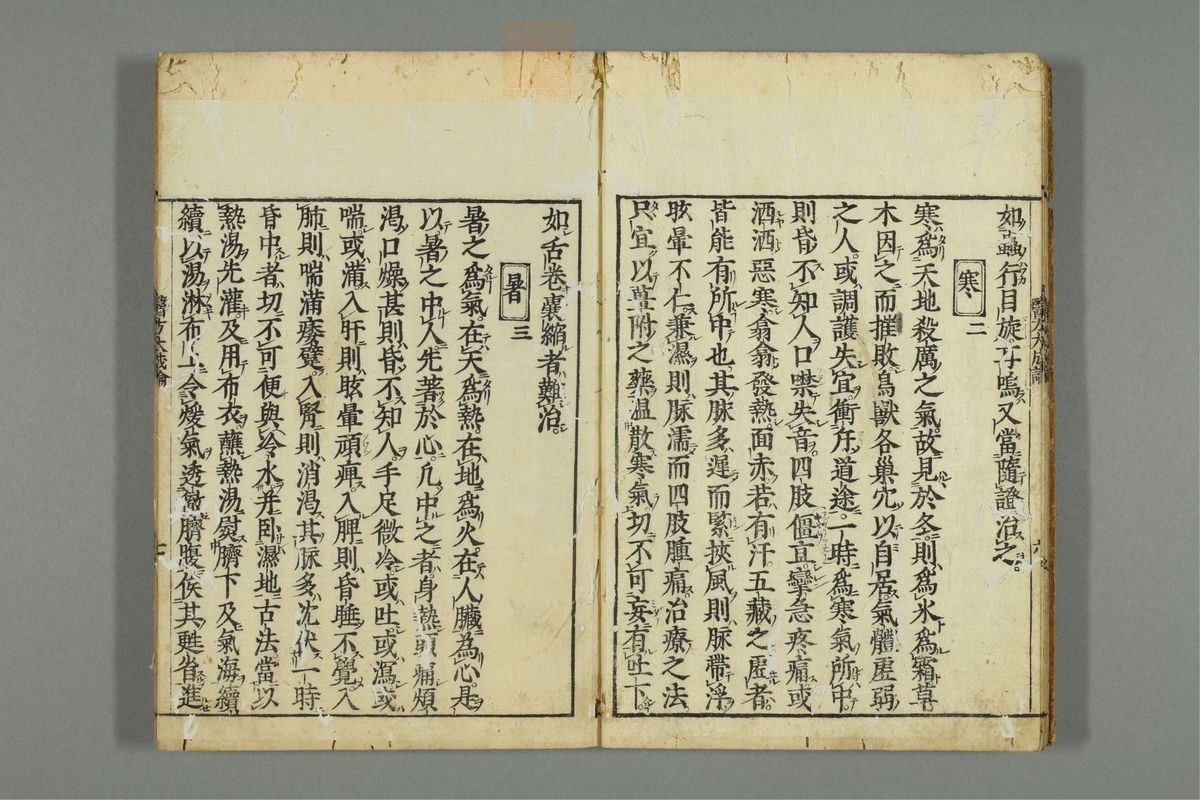 如蟲行目旋耳鳴又當隨證治之
寒 二
寒爲天地殺厲之氣故見於冬則爲氷爲霜草
木因之而摧敗鳥獸各巢穴以自居氣體虛弱
之人或調護失宜衝斥道途一時爲寒氣所中
則昏不知人口噤失音四肢僵直攣急疼痛或
洒洒惡寒翕翕發熱面赤若有汗五藏之虛者
皆能有所中也其脉多遲而緊挾風則脉帶浮
眩暈不仁兼濕則脉濡而四肢腫痛治療之法
只宜以薑附之藥温散寒氣切不可妄有吐下
如舌卷囊縮者難治
暑 三
暑之爲氣在天爲熱在地爲火在人臟為心是
以暑之中人先著於心凢中之者身熱頭痛煩
渴口燥甚則昏不知人手足微冷或吐或瀉或
喘或滿入肝則眩暈頑痺入脾則昏睡不覺入
肺則喘滿痿躄入腎則消渴其脉多沈伏一時
昏中者切不可便與冷水并臥濕地古法當以
熱湯先灌及用布衣蘸熱湯熨臍下及氣海續
續以湯淋布上令煖氣透徹臍腹俟其甦省進